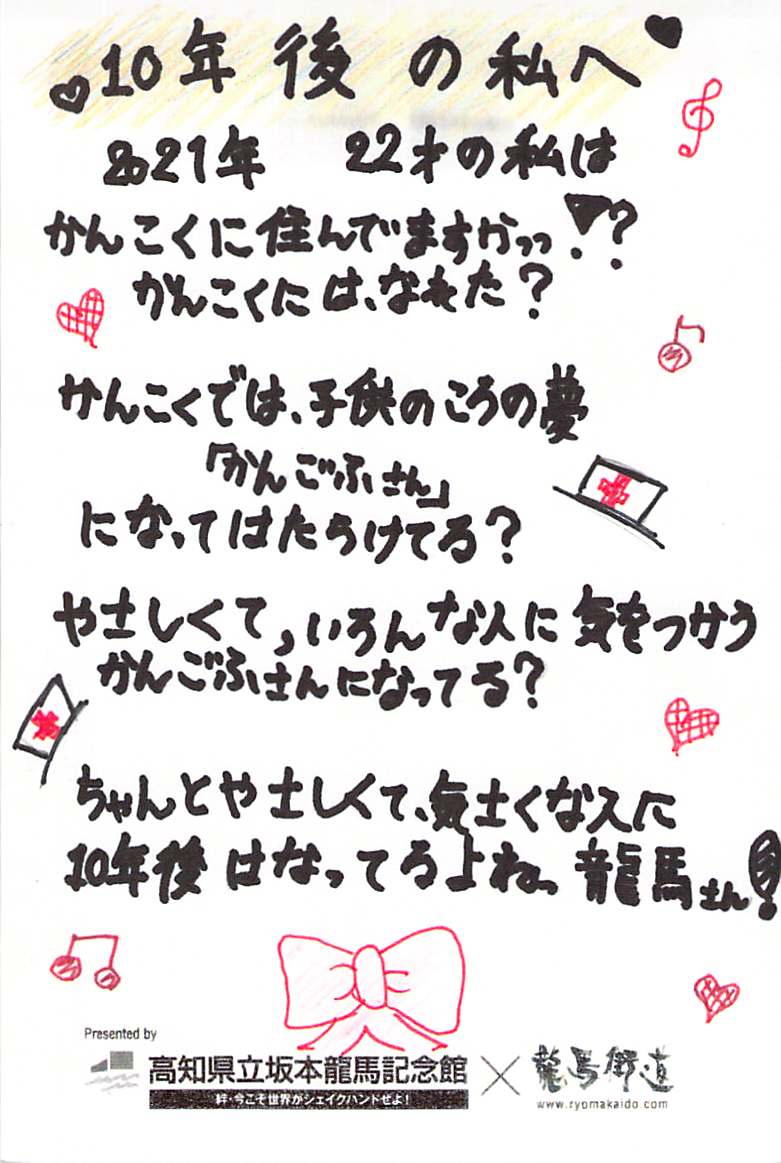 10年後の私へ
2021年 22才の私は
かんこくに住んでますかっっ!?
かんこくには、なれた?
かんこくでは、子供のころの夢
「かんごふさん」
になってはたらけてる?
やさしくて、いろんな人に気をつかう
かんごふさんになってる?
ちゃんとやさしくて、気さくな人に
10年後はなってるよねっ龍馬さん!
Presented by
高知県立坂本龍馬記念館×龍馬街道
絆・今こそ世界がシェイクハンドせよ!
www.ryomakaido.com